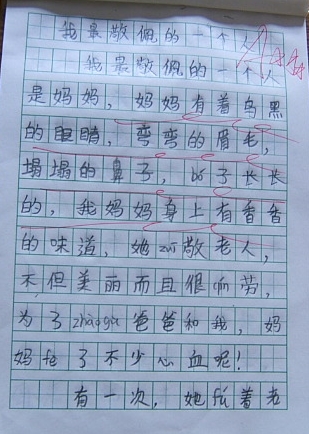 我最敬佩的一个人
我最敬佩的一个人
是妈妈，妈妈有着乌黑
的眼睛，弯弯的眉毛，
塌塌的鼻子，bí子长长
的，我妈妈身上有香香
的味道，她zūi敬老人，
不但美丽而且很qín劳，
为了zhàogù爸爸和我，妈
妈fe了不少心血呢！
有一次，她fú着老